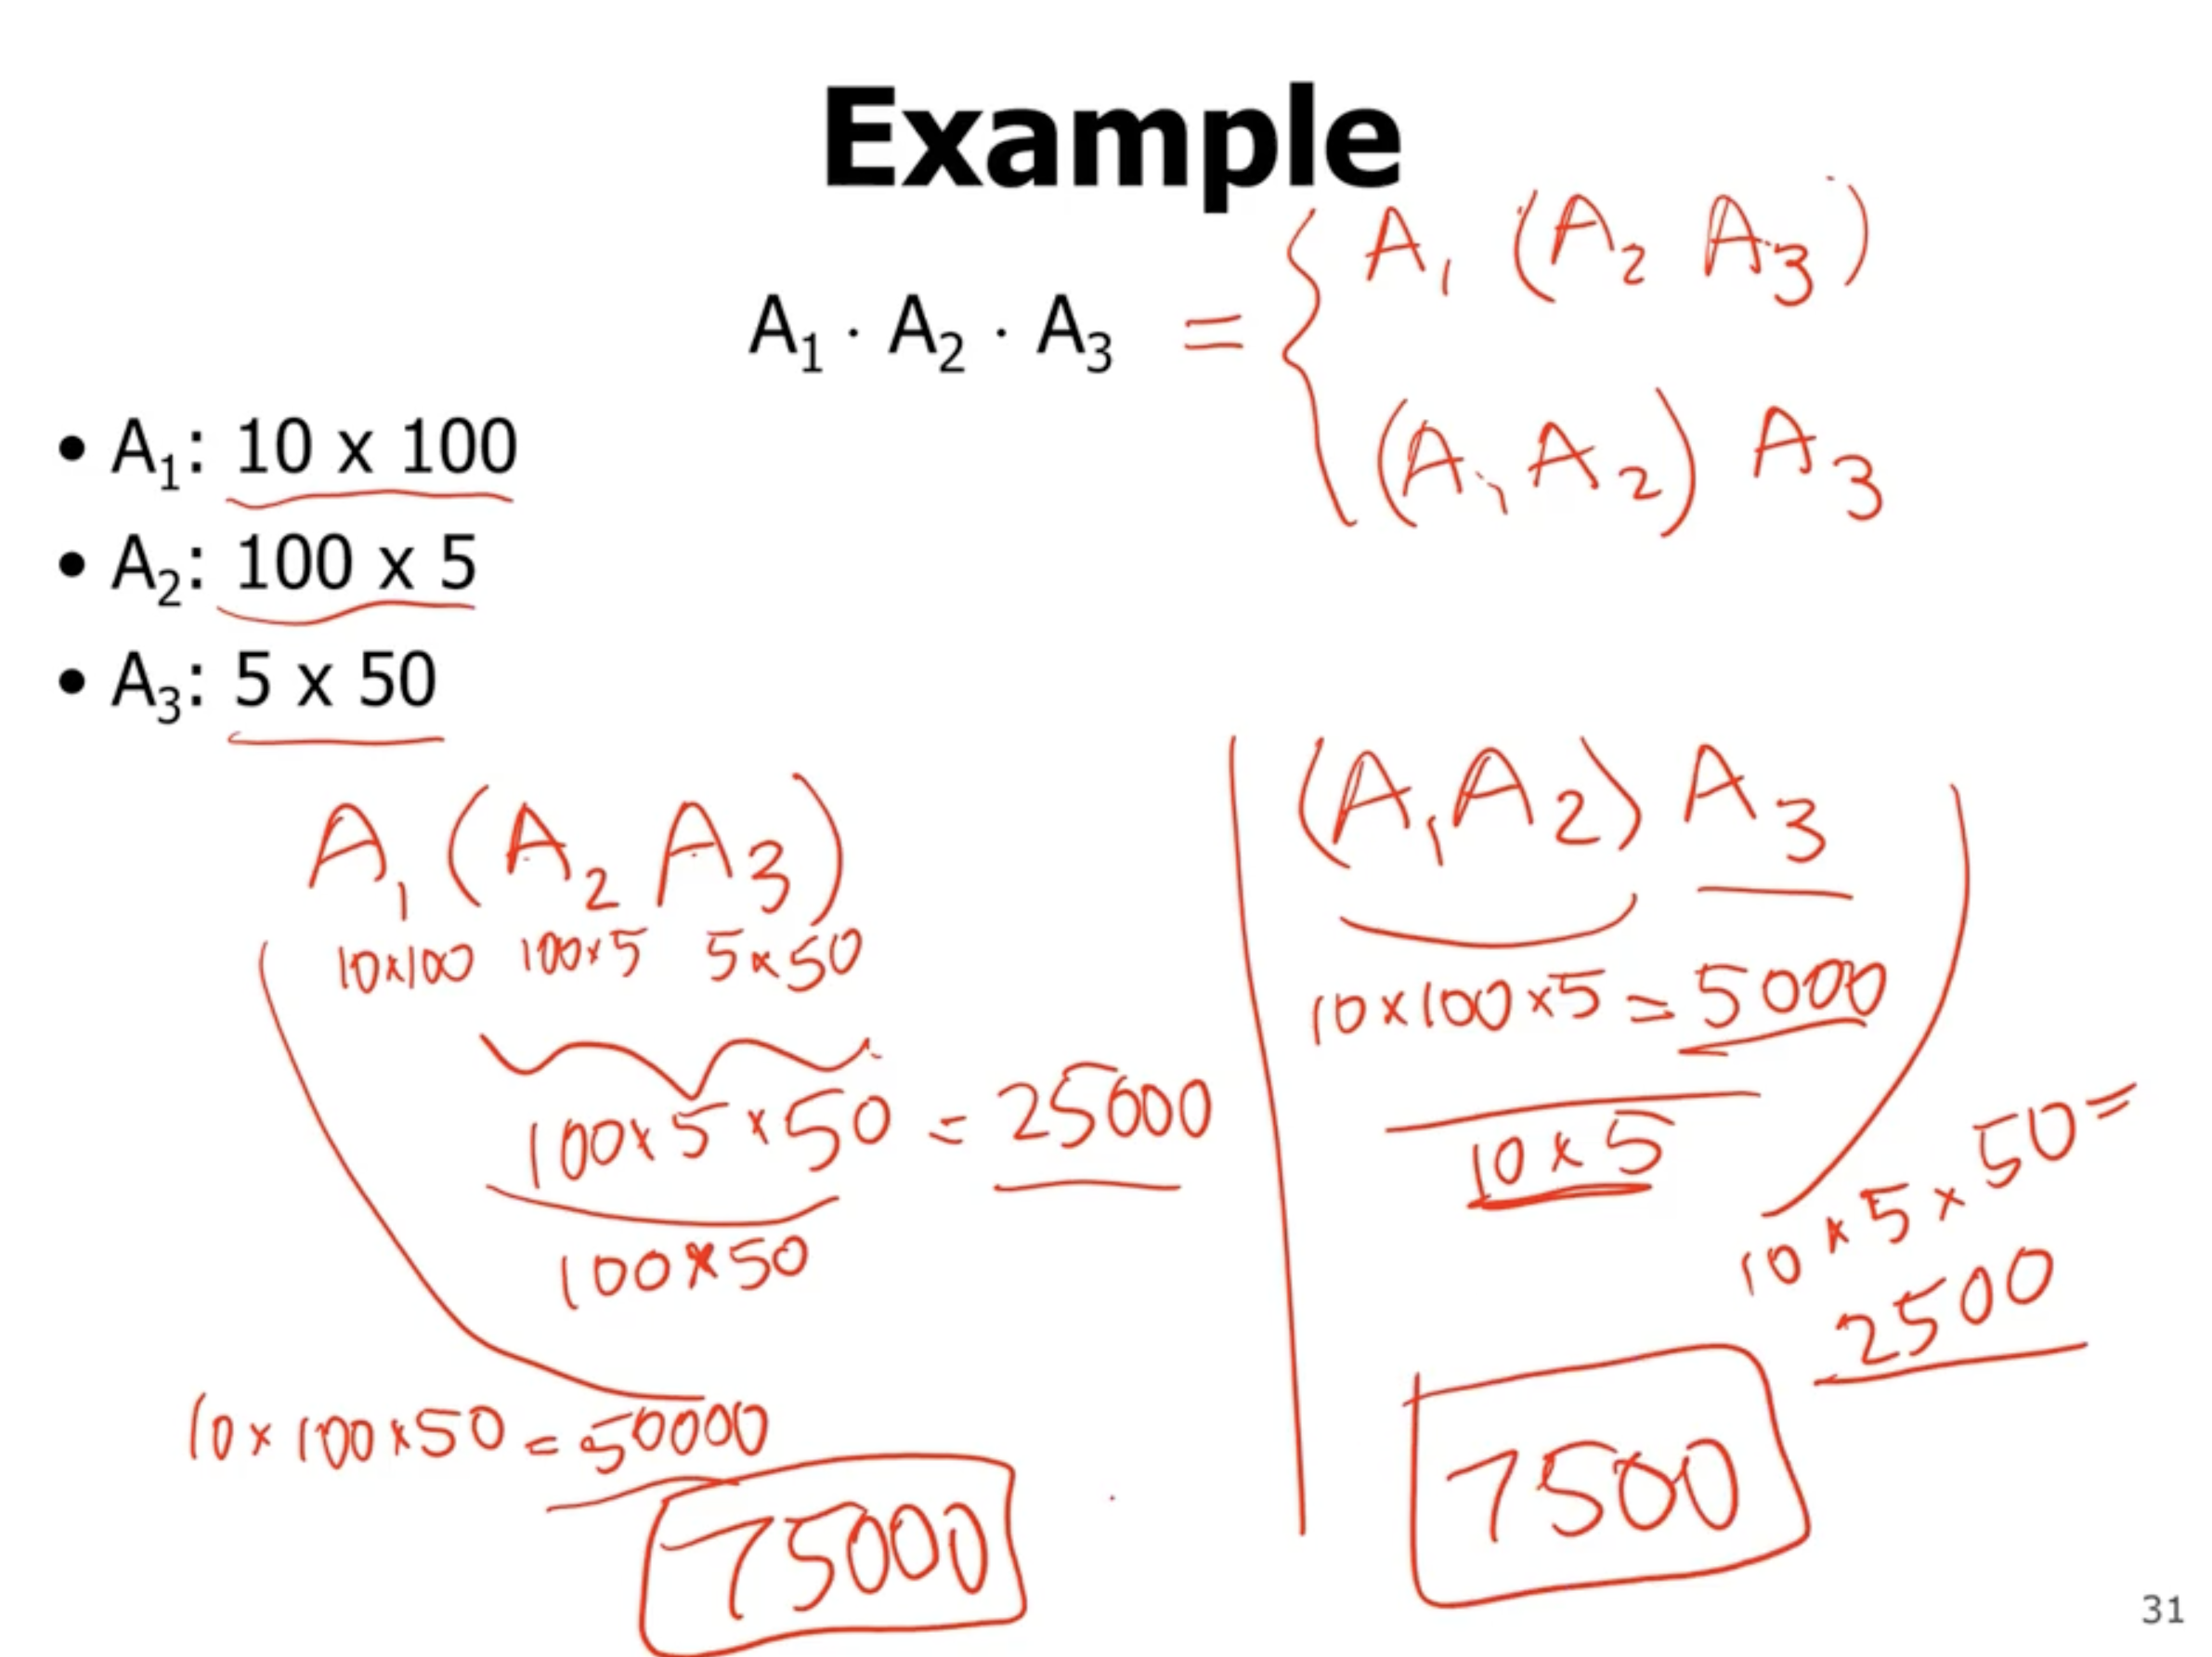 Example
A₁ (A₂ A₃)
A₁ · A₂ · A₃ =
(A₁ A₂) A₃
• A₁: 10 x 100
• A₂: 100 x 5
• A₃: 5 x 50
A₁ (A₂ A₃)
10x100 100x5 5x50
100x5x50 = 25000
100x50
10x100x50 = 50000
75000
(A₁A₂) A₃
10x100x5 = 5000
10x5
10x5x50=
2500
7500
31